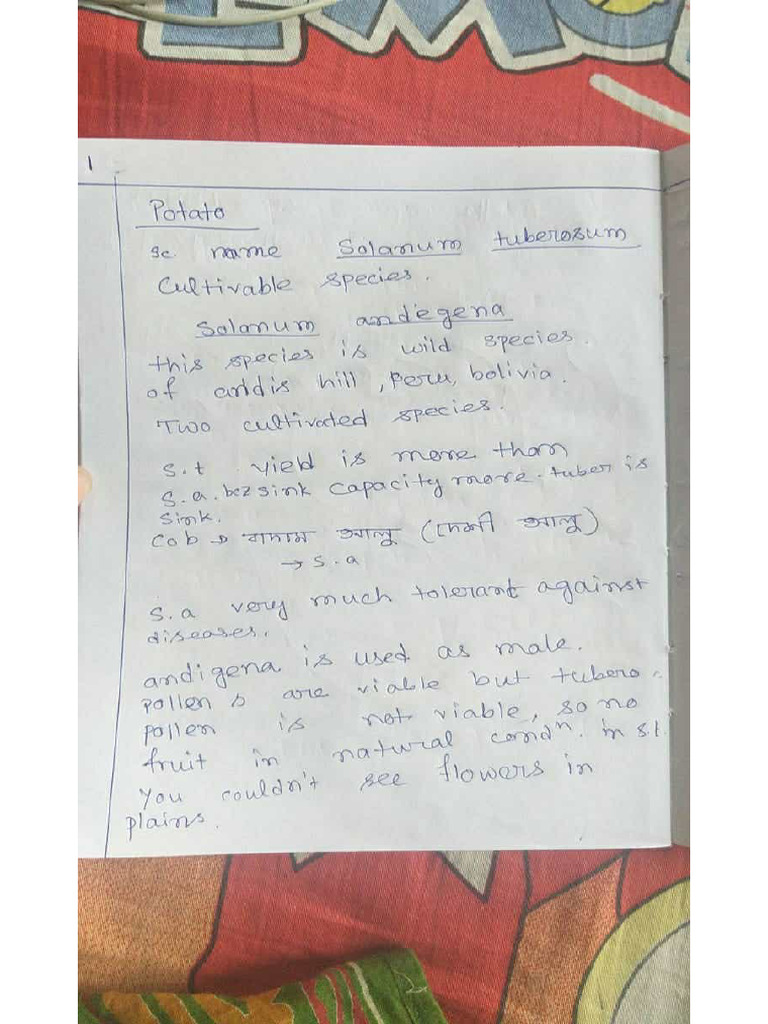 1
Potato
Sc. name Solanum tuberosum
Cultivable species.
Solanum andegena
this species is wild species.
of andis hill, Peru, bolivia.
Two cultivated species.
S.t yield is more than
S.a. bcz sink capacity more. tuber is
sink.
Cob → বাদাম আলু (দেশী আলু)
→ S.a
S.a very much tolerant against
diseases.
andigena is used as male.
pollen s are viable but tubero.
pollen is not viable, so no
fruit in natural condⁿ. in s.t.
You couldn't see flowers in
plains.